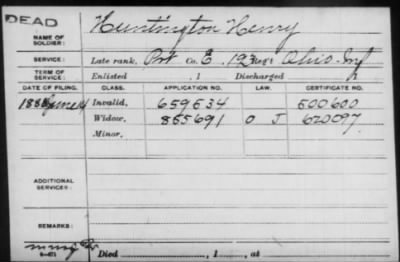 DEAD
NAME OF SOLDIER: Huntington Henry
SERVICE: Late rank, Pvt Co. E, 193 Reg't Ohio Inf
TERM OF SERVICE: Enlisted , 1 Discharged , 1
DATE OF FILING. CLASS. APPLICATION NO. LAW. CERTIFICATE NO.
1888 June 4 Invalid, 659634 500600
Widow, 855691 O J 620097
Minor,
ADDITIONAL SERVICES:
REMARKS:
3-471 Died , 1 , at